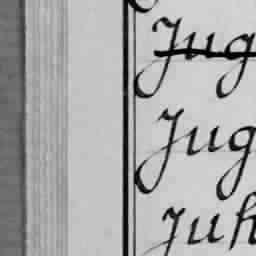 Jug
Jug
Juh